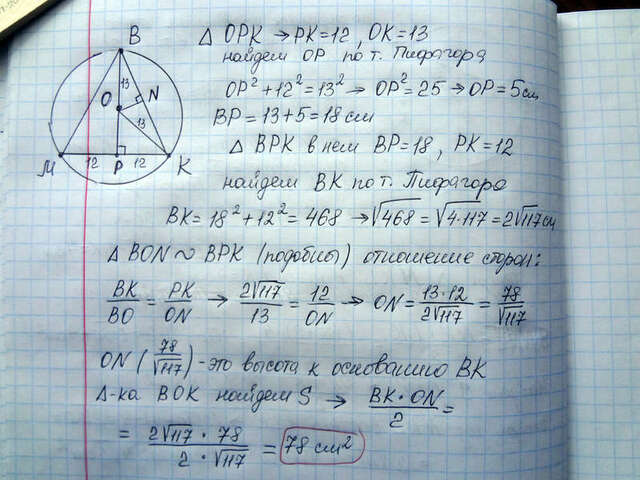 B
O
13
N
13
M
12
P
12
K
Δ OPK → PK=12, OK=13
найдем OP по т. Пифагора
OP²+12²=13² → OP²=25 → OP=5см
BP=13+5=18 см
Δ BPK в нем BP=18, PK=12
найдем BK по т. Пифагора
BK= 18²+12²=468 → √468=√4·117=2√117см
Δ BON ~ BPK (подобны) отношение сторон:
BK/BO = PK/ON → 2√117/13 = 12/ON → ON= 13·12/2√117 = 78/√117
ON (78/√117) - это высота к основанию BK
Δ-ка BOK найдем S → BK·ON/2 =
= 2√117 · 78/2·√117 = 78 см²